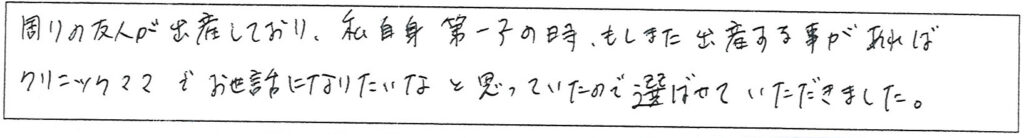 周りの友人が出産しており、私自身第一子の時、もしまた出産する事があれば
クリニックママでお世話になりたいなと思っていたので選ばせていただきました。